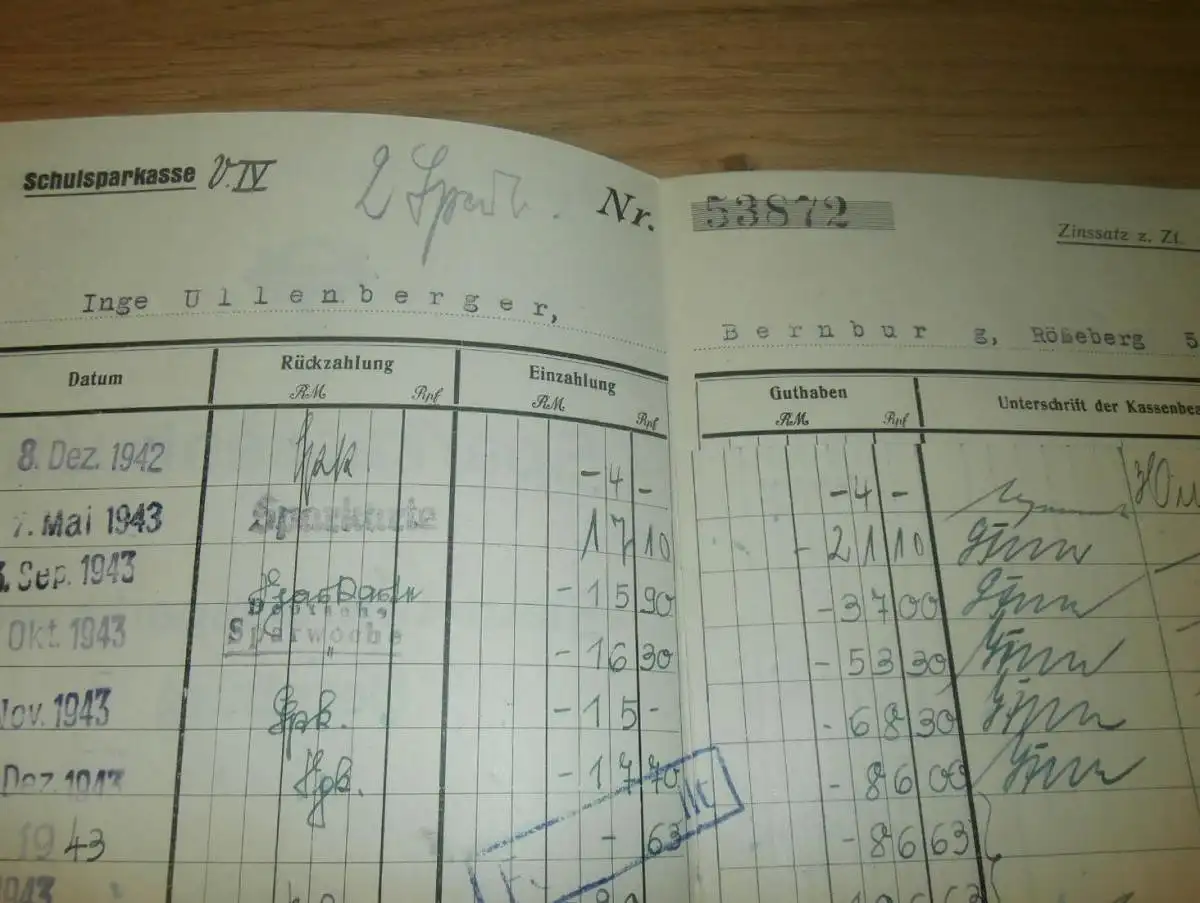 Schulsparkasse V.IV
Nr. 53872
Zinssatz z. Zt.
Inge Ullenberger,
Bernburg, Rößeberg 5
Datum Rückzahlung Einzahlung Guthaben Unterschrift der Kassenbea
RM Rpf RM Rpf RM Rpf
8. Dez. 1942 -4- -4-
7. Mai 1943 Sparkarte 17 10 -21 10
Sep. 1943 -15 90 -37 00
Okt 1943 Sparwoche -16 30 -53 30
Nov. 1943 Spk. -15- -68 30
Dez 1943 -17 70 -86 00
1943 - 63 -86 63
1943